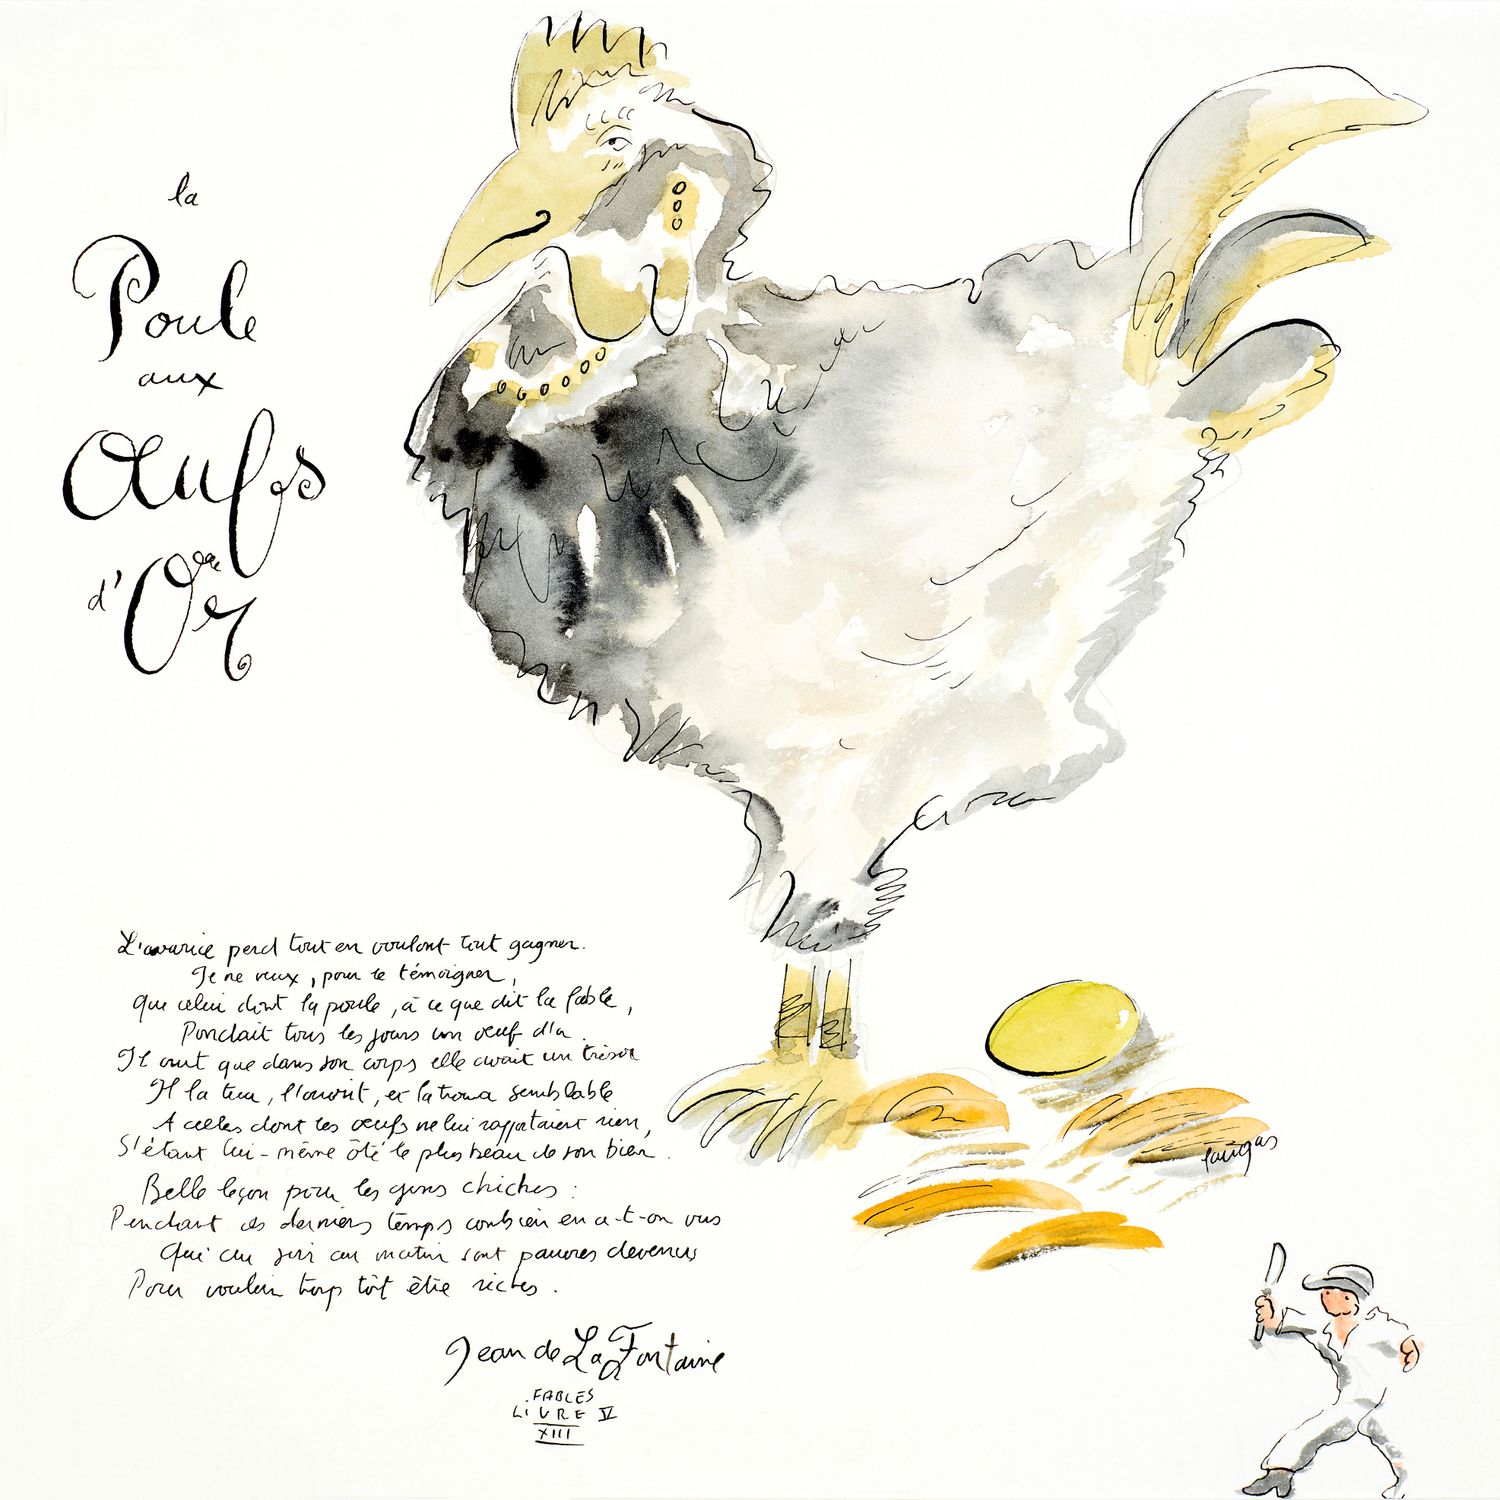 la
Poule
aux
Œufs
d'Or
L'avarice perd tout en voulant tout gagner.
Je ne veux, pour le témoigner,
Que celui dont la poule, à ce que dit la fable,
Pondait tous les jours un œuf d'or.
Il crut que dans son corps elle avait un trésor
Il la tua, l'ouvrit, et la trouva semblable
A celles dont les œufs ne lui rapportaient rien,
S'étant lui-même ôté le plus beau de son bien.
Belle leçon pour les gens chiches :
Pendant ces derniers temps combien en a-t-on vus
Qui du soir au matin sont pauvres devenus
Pour vouloir trop tôt être riches.
Jean de La Fontaine
FABLES
LIVRE V
XIII